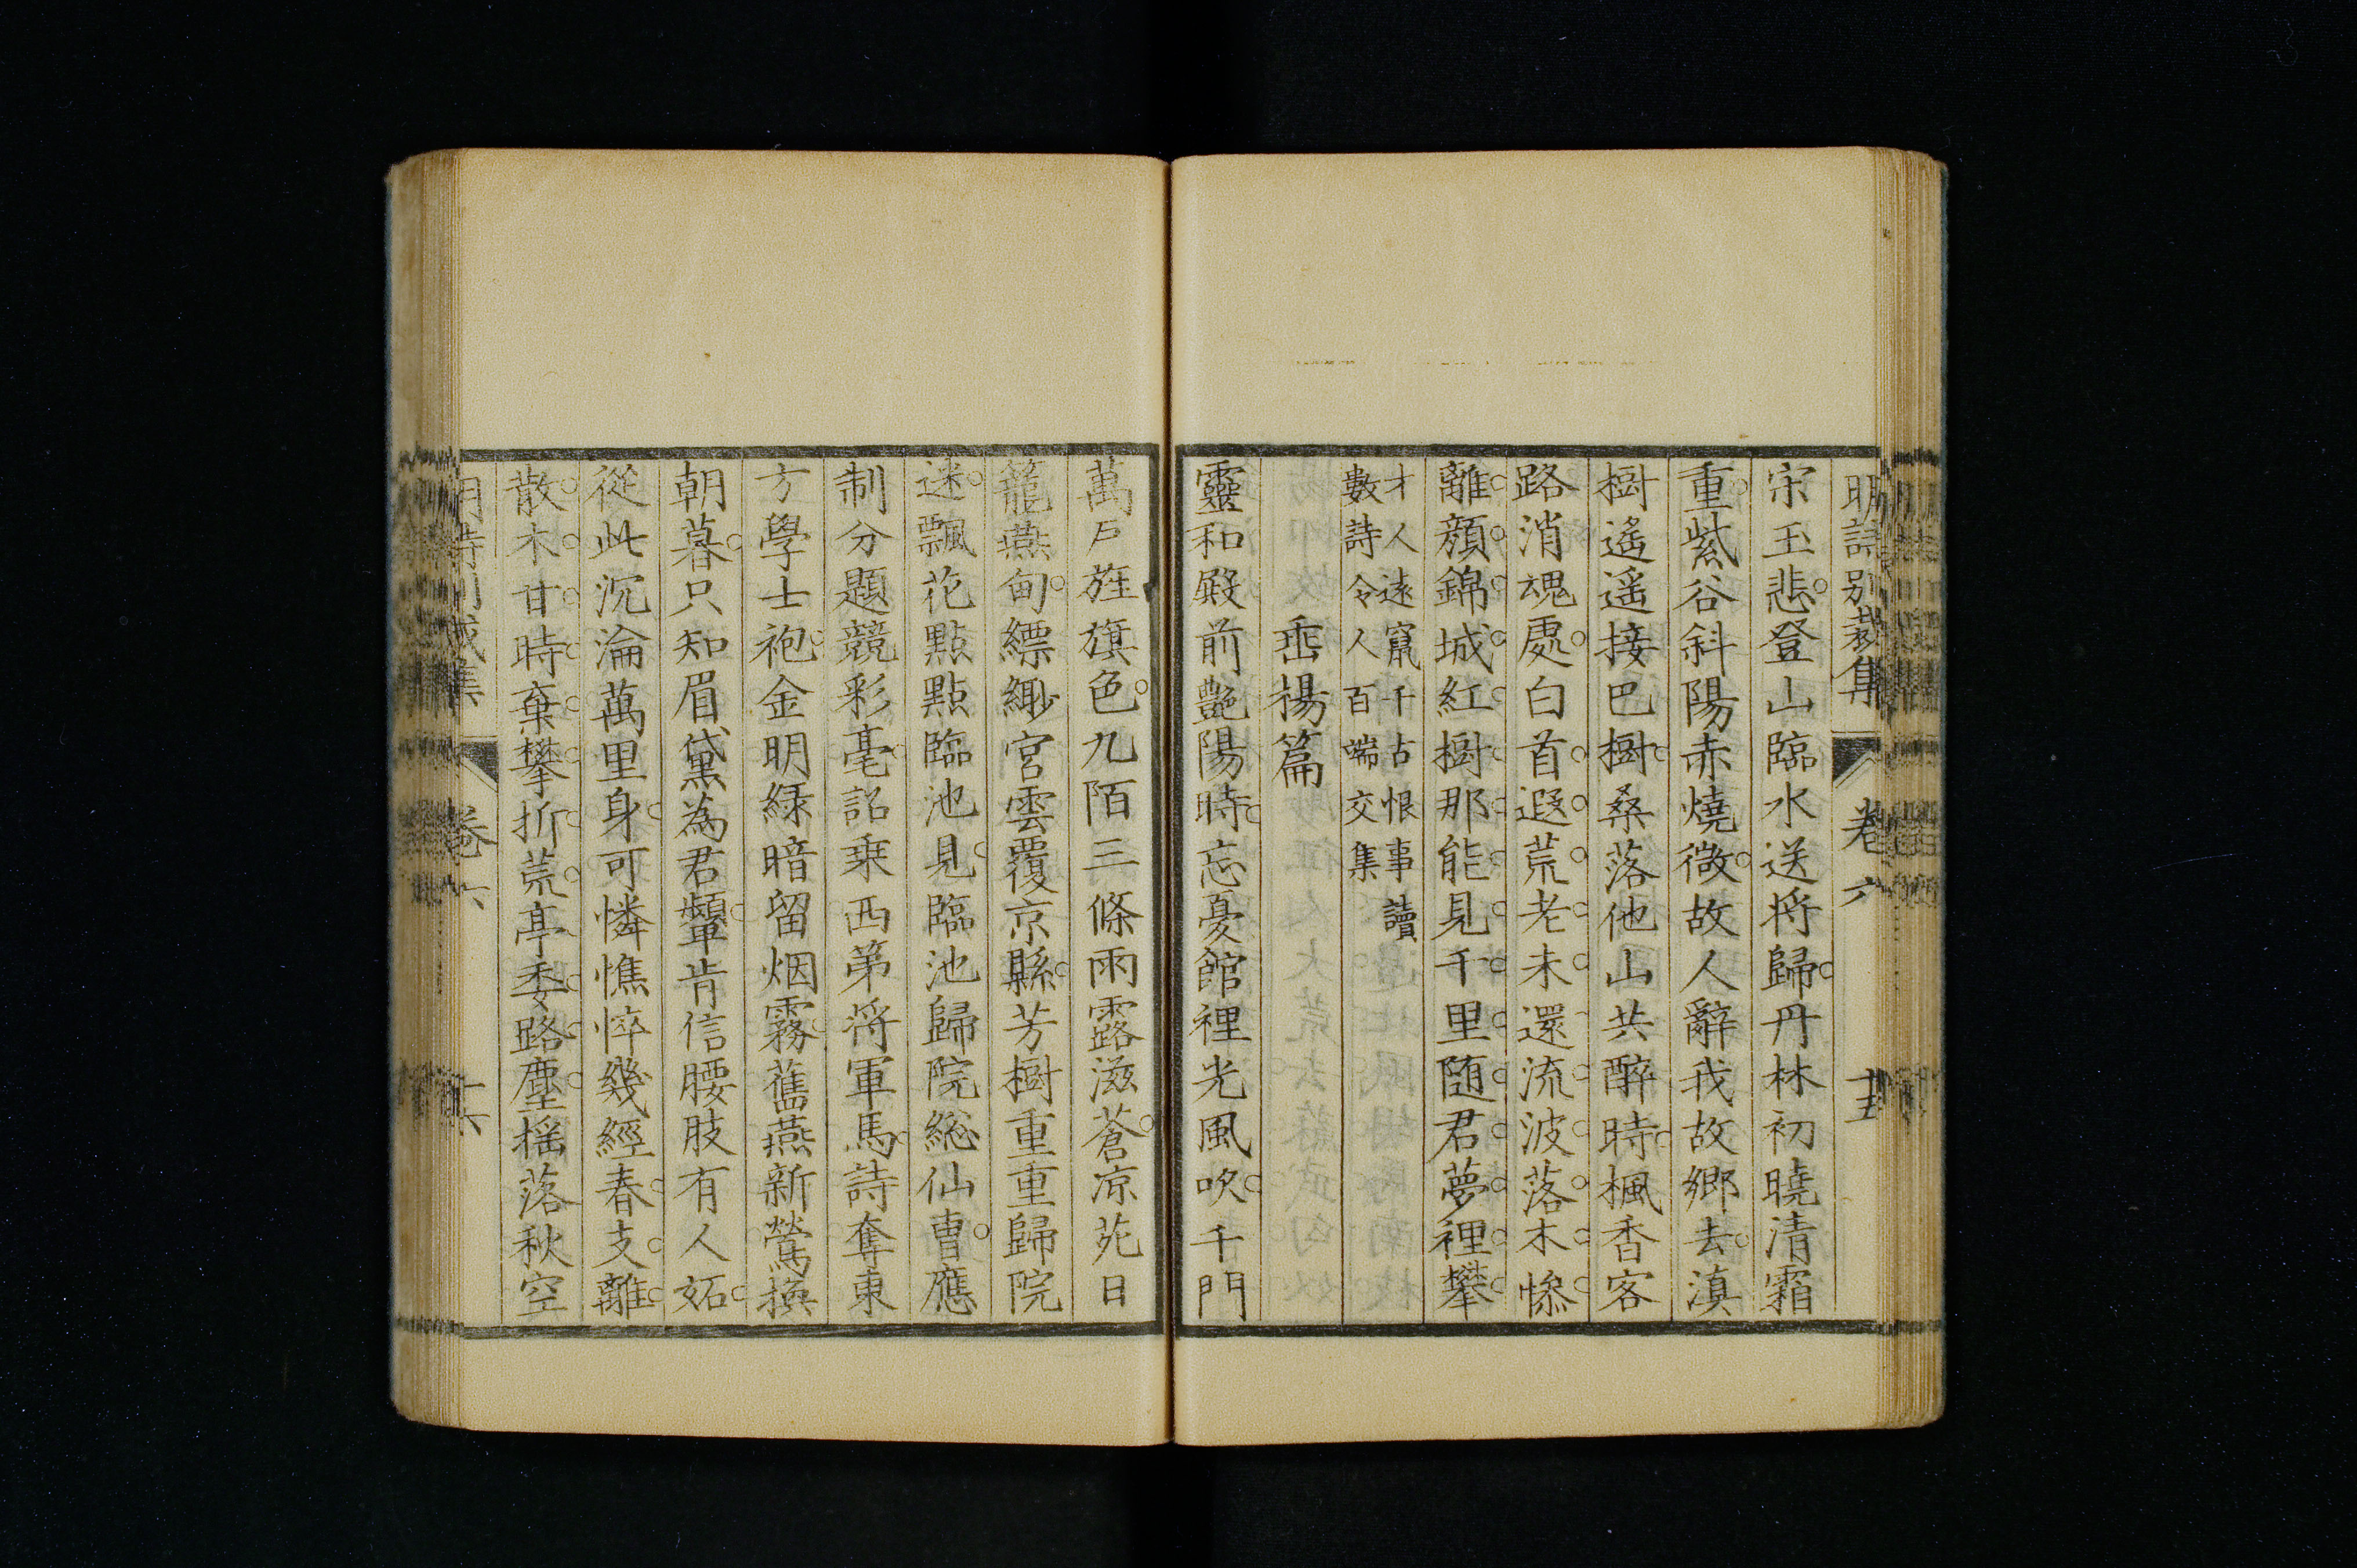 明詩別裁集 卷六 十五
宋玉悲登山臨水送将歸丹林初曉清霜
重紫谷斜陽赤燒微故人辭我故鄉去滇
樹遙遥接巴樹桑落他山共醉時楓香客
路消魂處白首遐荒老未還流波落木慘
離顔錦城紅樹那能見千里随君夢裡攀
才人遠竄千古恨事讀
數詩令人百端交集
垂楊篇
靈和殿前艷陽時忘憂館裡光風吹千門
萬戶旌旗色九陌三條雨露滋蒼凉苑日
籠燕甸縹緲宮雲覆京縣芳樹重重歸院
迷飄花點點臨池見臨池歸院総仙曹應
制分題競彩毫詔乘西第将軍馬詩奪東
方學士袍金明緑暗留烟霧舊燕新鶯換
朝暮只知眉黛為君顰肯信腰肢有人妬
從此沉淪萬里身可憐憔悴幾經春支離
散木甘時棄攀折荒亭委路塵揺落秋空
卷六